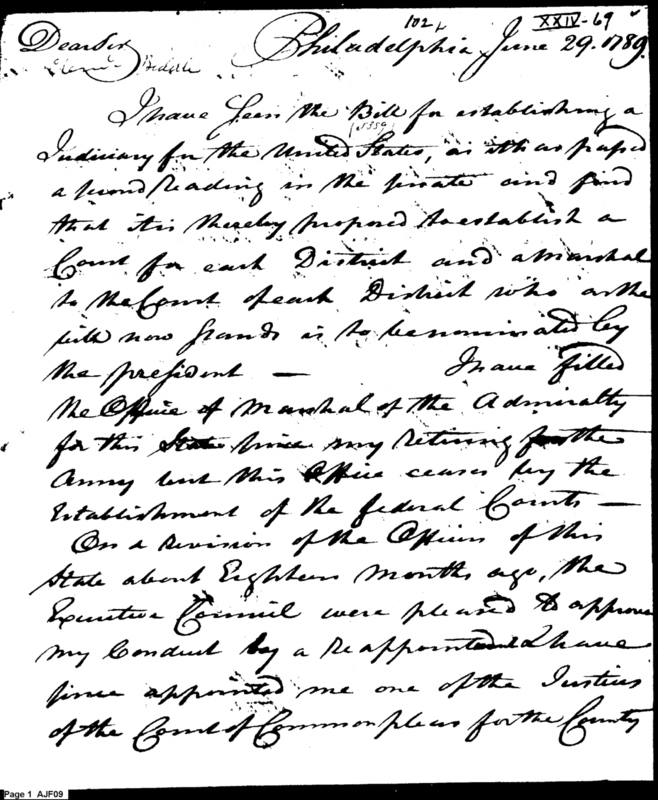 102
XXIV-69
Dear Sir Philadelphia June 29. 1789.
Clemt Biddle
I have Seen the Bill for establishing a
(5559)
Judiciary for the United States, as it has passed
a second Reading in the senate and find
that it is thereby proposed to establish a
Court for each District and a Marshal
to the Court of each District who as the
bill now stands is to be nominated by
the president — I have filled
the Office of Marshal of the Admiralty
for this State since my retiring from the
Army but this Office ceases by the
Establishment of the federal Courts —
On a Revision of the Officers of this
State about Eighteen Months ago, the
Executive Council were pleased to approve
my Conduct by a Reappointment & have
since appointed me one of the Justices
of the Court of Common pleas for the County
Page 1 AJF09